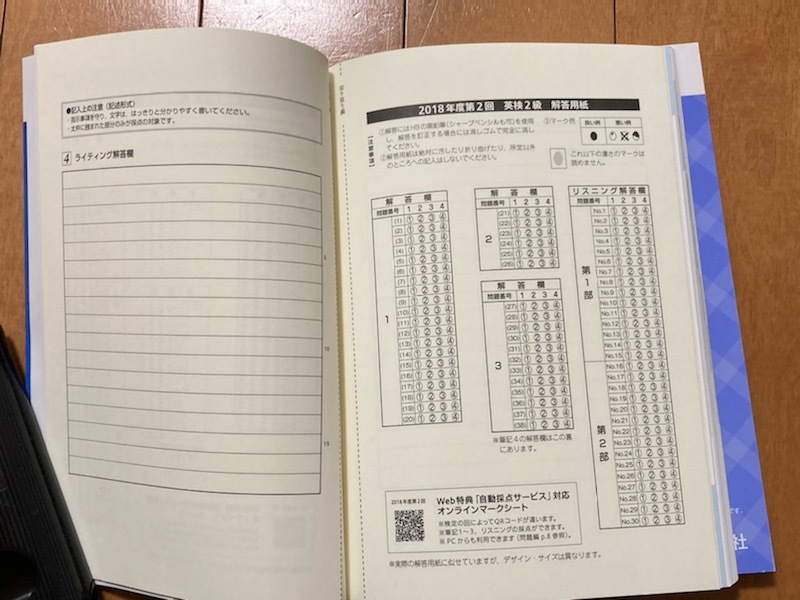 ●記入上の注意（記述形式）
・指示事項を守り、文字は、はっきりと分かりやすく書いてください。
・太枠に囲まれた部分のみが採点の対象です。
4 ライティング解答欄
5
10
15
切り取り線
2018年度第2回 英検2級 解答用紙
【注意事項】
①解答にはHBの黒鉛筆（シャープペンシルも可）を使用
し、解答を訂正する場合には消しゴムで完全に消し
てください。
②解答用紙は絶対に汚したり折り曲げたり、所定以外
のところへの記入はしないでください。
③マーク例
良い例 悪い例
これ以下の濃さのマークは
読めません。
解答欄
問題番号 1 2 3 4
1
(1) ① ② ③ ④
(2) ① ② ③ ④
(3) ① ② ③ ④
(4) ① ② ③ ④
(5) ① ② ③ ④
(6) ① ② ③ ④
(7) ① ② ③ ④
(8) ① ② ③ ④
(9) ① ② ③ ④
(10) ① ② ③ ④
(11) ① ② ③ ④
(12) ① ② ③ ④
(13) ① ② ③ ④
(14) ① ② ③ ④
(15) ① ② ③ ④
(16) ① ② ③ ④
(17) ① ② ③ ④
(18) ① ② ③ ④
(19) ① ② ③ ④
(20) ① ② ③ ④
解答欄
問題番号 1 2 3 4
2
(21) ① ② ③ ④
(22) ① ② ③ ④
(23) ① ② ③ ④
(24) ① ② ③ ④
(25) ① ② ③ ④
(26) ① ② ③ ④
解答欄
問題番号 1 2 3 4
3
(27) ① ② ③ ④
(28) ① ② ③ ④
(29) ① ② ③ ④
(30) ① ② ③ ④
(31) ① ② ③ ④
(32) ① ② ③ ④
(33) ① ② ③ ④
(34) ① ② ③ ④
(35) ① ② ③ ④
(36) ① ② ③ ④
(37) ① ② ③ ④
(38) ① ② ③ ④
※筆記4の解答欄はこの裏
にあります。
リスニング解答欄
問題番号 1 2 3 4
第1部
No.1 ① ② ③ ④
No.2 ① ② ③ ④
No.3 ① ② ③ ④
No.4 ① ② ③ ④
No.5 ① ② ③ ④
No.6 ① ② ③ ④
No.7 ① ② ③ ④
No.8 ① ② ③ ④
No.9 ① ② ③ ④
No.10 ① ② ③ ④
No.11 ① ② ③ ④
No.12 ① ② ③ ④
No.13 ① ② ③ ④
No.14 ① ② ③ ④
No.15 ① ② ③ ④
第2部
No.16 ① ② ③ ④
No.17 ① ② ③ ④
No.18 ① ② ③ ④
No.19 ① ② ③ ④
No.20 ① ② ③ ④
No.21 ① ② ③ ④
No.22 ① ② ③ ④
No.23 ① ② ③ ④
No.24 ① ② ③ ④
No.25 ① ② ③ ④
No.26 ① ② ③ ④
No.27 ① ② ③ ④
No.28 ① ② ③ ④
No.29 ① ② ③ ④
No.30 ① ② ③ ④
2018年度第2回
Web特典「自動採点サービス」対応
オンラインマークシート
※検定の回によってQRコードが違います。
※筆記1～3、リスニングの採点ができます。
※PCからも利用できます（問題編 p.8 参照）。
※実際の解答用紙に似せていますが、デザイン・サイズは異なります。
です。
社